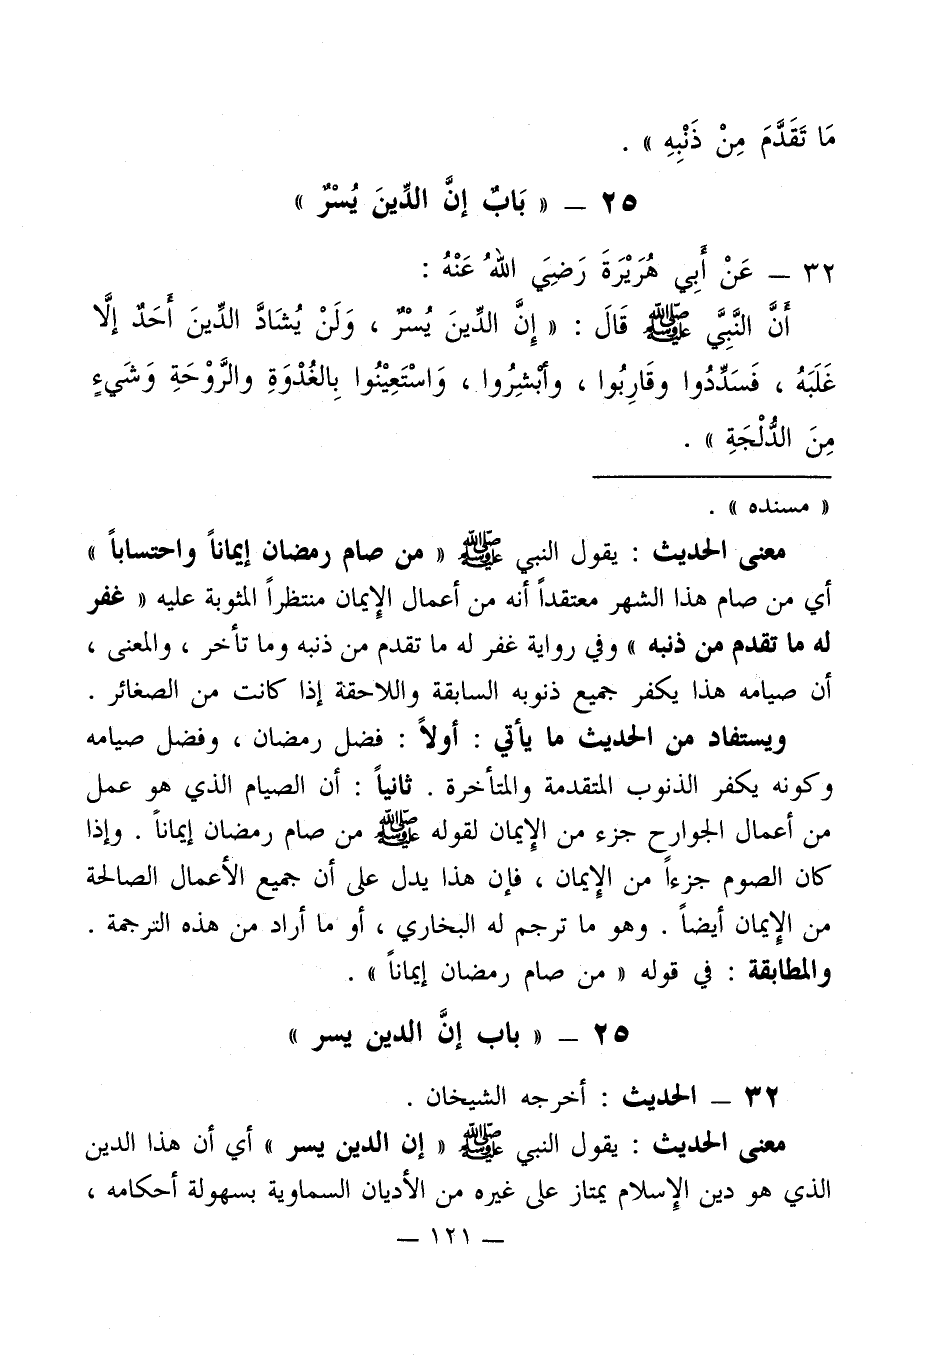 مَا تَقَدَّمَ مِنْ ذَنْبِهِ » .
٢٥ – « بَابٌ إنَّ الدِّينَ يُسْرٌ »
٣٢ – عَنْ أَبِي هُرَيْرَةَ رَضِيَ اللهُ عَنْهُ :
أَنَّ النَّبِيَّ ﷺ قَالَ : « إِنَّ الدِّينَ يُسْرٌ ، وَلَنْ يُشَادَّ الدِّينَ أَحَدٌ إلَّا
غَلَبَهُ ، فَسَدِّدُوا وقَارِبُوا ، وأبْشِرُوا ، وَاسْتَعِيْنُوا بِالغُدْوَةِ والرَّوْحَةِ وَشَيءٍ
مِنَ الدُّلْجَةِ » .
« مسنده » .
معنى الحديث : يقول النبي ﷺ « من صام رمضان إيماناً واحتساباً »
أي من صام هذا الشهر معتقداً أنه من أعمال الإيمان منتظراً المثوبة عليه « غفر
له ما تقدم من ذنبه » وفي رواية غفر له ما تقدم من ذنبه وما تأخر ، والمعنى ،
أن صيامه هذا يكفر جميع ذنوبه السابقة واللاحقة إذا كانت من الصغائر .
ويستفاد من الحديث ما يأتي : أولاً : فضل رمضان ، وفضل صيامه
وكونه يكفر الذنوب المتقدمة والمتأخرة . ثانياً : أن الصيام الذي هو عمل
من أعمال الجوارح جزء من الإيمان لقوله ﷺ من صام رمضان إيماناً . وإذا
كان الصوم جزءاً من الإيمان ، فإن هذا يدل على أن جميع الأعمال الصالحة
من الإيمان أيضاً . وهو ما ترجم له البخاري ، أو ما أراد من هذه الترجمة .
والمطابقة : في قوله « من صام رمضان إيماناً » .
٢٥ – « باب إنَّ الدين يسر »
٣٢ – الحديث : أخرجه الشيخان .
معنى الحديث : يقول النبي ﷺ « إن الدين يسر » أي أن هذا الدين
الذي هو دين الإسلام يمتاز على غيره من الأديان السماوية بسهولة أحكامه ،
– ١٢١ –